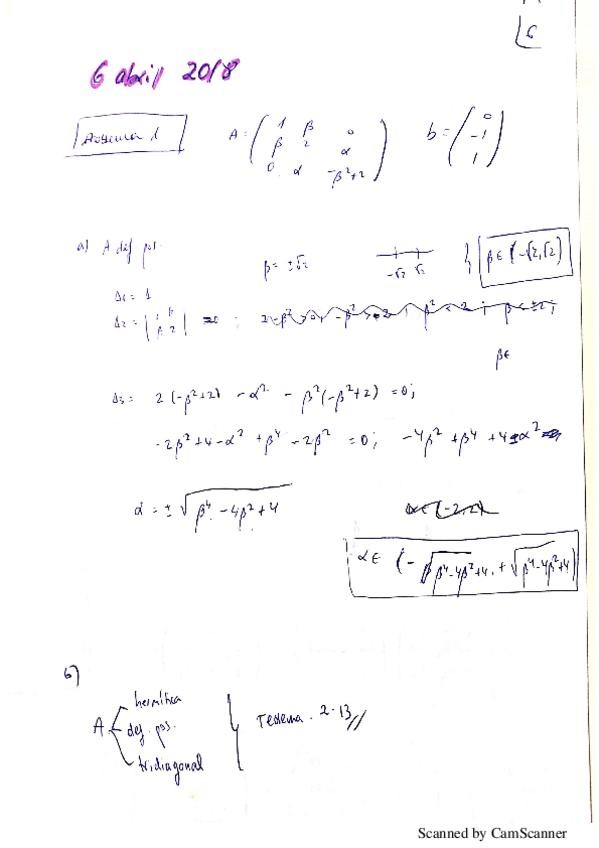 6
6 abril 2018
Problema 1 A = ( 1 β 0 ; β 2 α ; 0 α -β²+2 ) b = ( 0 ; -1 ; 1 )
a) A def pos. β = ±√2 -√2 √2 } β ∈ (-√2, √2)
Δ1 = 1
Δ2 = | 1 β ; β 2 |
β ∈
Δ3 = 2(-β²+2) - α² - β²(-β²+2) = 0;
-2β²+4-α²+β⁴-2β² = 0; -4β²+β⁴+4=α²
α = ±√(β⁴-4β²+4) α ∈ (-2,2)
α ∈ (-√(β⁴-4β²+4), +√(β⁴-4β²+4))
b)
A hermítica
def. pos. } Teorema. 2.13//
tridiagonal
Scanned by CamScanner